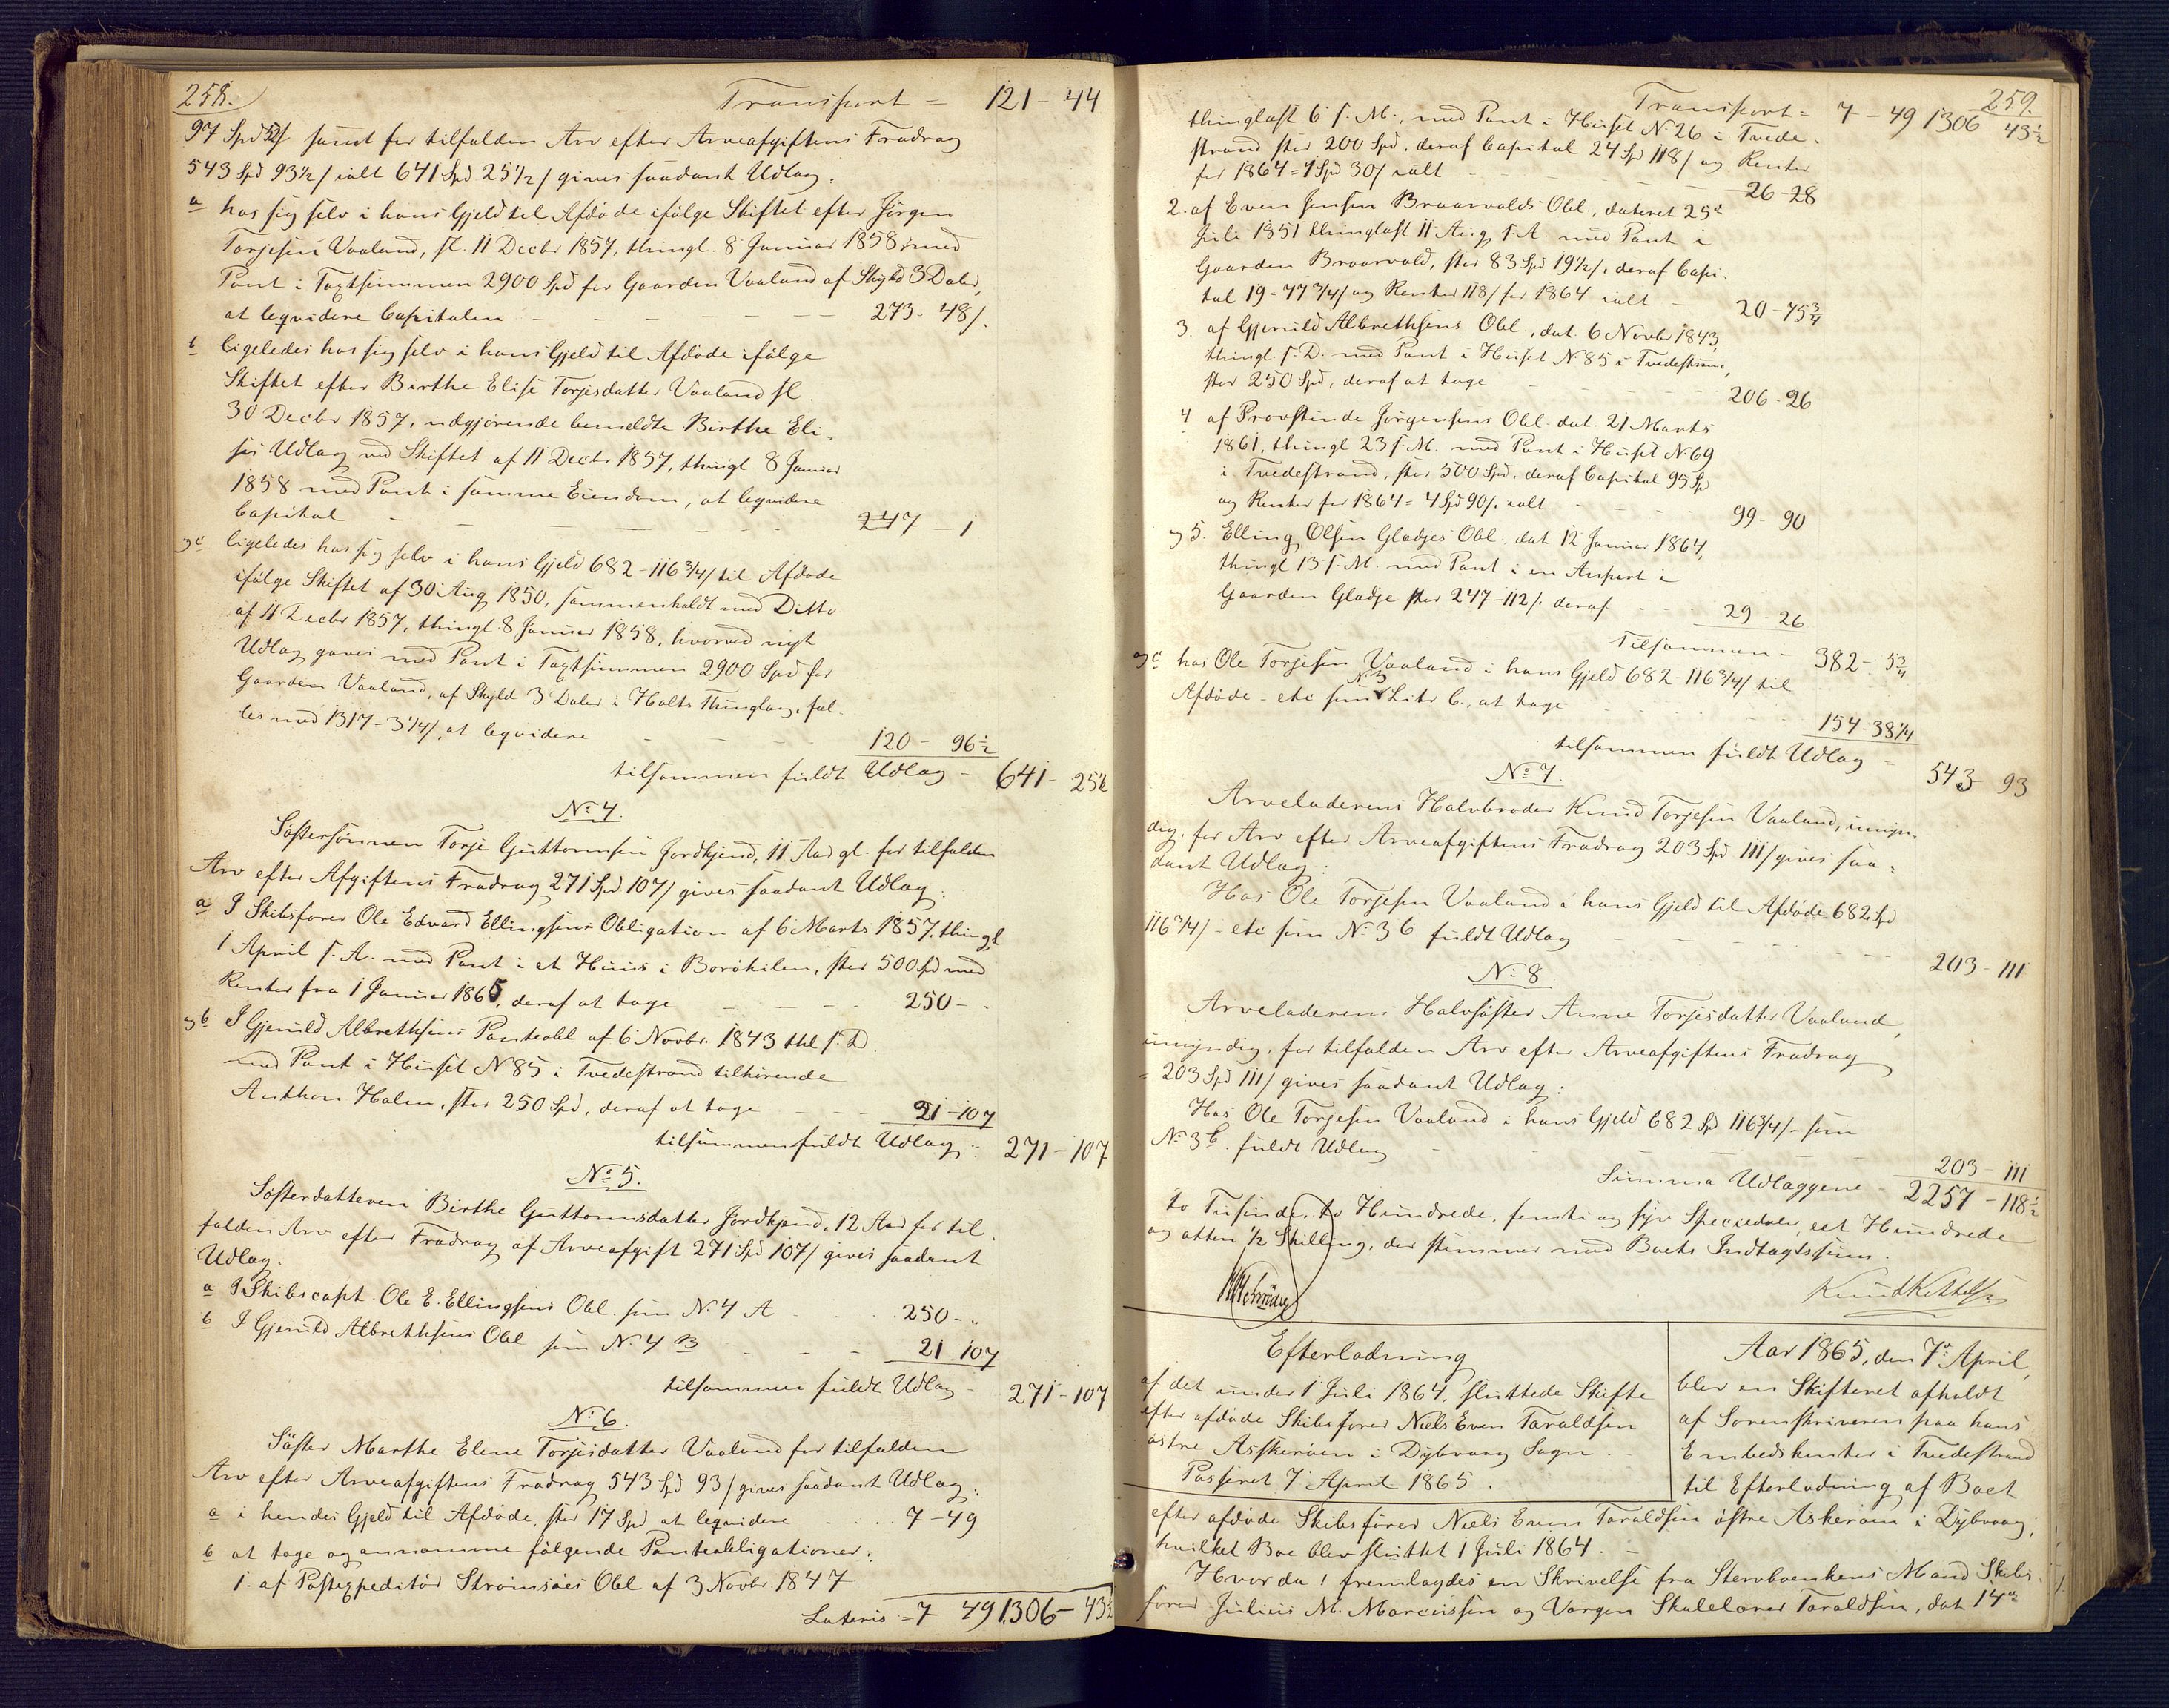 258.
Transport = 121 - 44
97 Spd 52/ samt for tilfalden Arv efter Arveafgiftens Fradrag
543 Spd 93½/ ialt 641 Spd 25½/ gives saadant Udlæg.
a hos sig selv i hans Gjeld til Afdøde ifølge Skiftet efter Jørgen
Torjesen Vaaland, sl. 11 Decbr 1857, thingl. 8 Januar 1858 med
Pant i Taxtsummen 2900 Spd for Gaarden Vaaland af Skyld 3 Daler,
at leqvidere Capitalen - - - - - 273 - 48/.
b ligeledes hos sig selv i hans Gjeld til Afdøde ifølge
Skiftet efter Birthe Elise Torjesdatter Vaaland sl.
30 Decbr 1857, udgjørende bemeldte Birthe Eli-
ses Udlæg ved Skiftet af 11 Decbr 1857, thingl 8 Januar
1858 med Pant i samme Eiendom, at leqvidere
Capital - - - - - 247 - 1
og c ligeledes hos sig selv i hans Gjeld 682 - 116 3/4/ til Afdøde
ifølge Skiftet af 30 Aug 1850, sammenholdt med Ditto
af 11 Decbr 1857, thingl. 8 Januar 1858, hvorved nyt
Udlæg gaves med Pant i Taxtsummen 2900 Spd for
Gaarden Vaaland, af Skyld 3 Daler i Holts Thinglag, fæl-
les med 1317 - 3 1/4/, at leqvidere - - - 120 - 96½
tilsammen fuldt Udlæg - 641 - 25½
No 4.
Søstersønnen Torje Guttormsen Jordkjend, 11 Aar gl. for tilfalden
Arv efter Afgiftens Fradrag 271 Spd 107/ gives saadant Udlæg:
a I Skibsfører Ole Edvard Ellingsens Obligation af 6 Marts 1857, thingl
1 April s. A. med Pant i et Huus i Borøkilen, stor 500 Spd med
Renter fra 1 Januar 1865, deraf at tage - - - 250 -
og b I Gjeruld Albrethsens Panteobl af 6 Novbr. 1843 thl s. D.
med Pant i Huset No 85 i Tvedestrand tilhørende
Anthon Holm, stor 250 Spd, deraf at tage - - - 21 - 107
tilsammen fuldt Udlæg: 271 - 107
No 5.
Søsterdatteren Birthe Guttormsdatter Jordkjend, 12 Aar for til-
falden Arv efter Fradrag af Arveafgift 271 Spd 107/ gives saadant
Udlæg.
a I Skibscapt. Ole E. Ellingsens Obl. som No 4 A - 250 - "
b I Gjeruld Albrethsens Obl som No 4 B - - - 21 107
tilsammen fuldt Udlæg - 271 - 107
No 6.
Søster Marthe Elene Torjesdatter Vaaland for tilfalden
Arv efter Arveafgiftens Fradrag 543 Spd 93/ gives saadant Udlæg:
a i hendes Gjeld til Afdøde, stor 17 Spd at leqvidere . . . . 7 - 49
b at tage og annamme følgende Panteobligationer:
1. af Postexpeditør Strømsøes Obl af 3 Novbr. 1847
Lateris = 7 49 1306 - 43½
259.
Transport = 7 - 49 1306 43½
thinglæst 6 s. M., med Pant i Huset No 26 i Tvede-
strand stor 200 Spd, deraf Capital 24 Spd 118/ og Renter
for 1864 = 1 Spd 30/ ialt - - - 26 - 28
2. af Even Jensen Braarvolds Obl., dateret 25de
Juli 1851 thinglæst 11 Aug s. A. med Pant i
Gaarden Braarvold, stor 83 Spd 19½/, deraf Capi-
tal 19 - 77 3/4/ og Renter 118/ for 1864 ialt - 20 - 75 3/4
3. af Gjeruld Albrethsens Obl., dat. 6 Novbr 1843,
thingl. s. D. med Pant i Huset No 85 i Tvedestrand,
stor 250 Spd, deraf at tage - - - 206 - 26
4 af Provstinde Jørgensens Obl. dat. 21 Marts
1861, thingl 23 s. M. med Pant i Huset No 69
i Tvedestrand, stor 500 Spd, deraf Capital 95 Sp
og Renter for 1864 = 4 Spd 90/. ialt - - - 99 - 90
og 5. Elling Olsen Gladjes Obl. dat 12 Januar 1864,
thingl 13 s. M. med Pant i en Anpart i
Gaarden Gladje stor 247 - 112/. deraf - - - 29 - 26
Tilsammen - 382 - 5 3/4
og c hos Ole Torjesen Vaaland i hans Gjeld 682 - 116 3/4/ til
Afdøde - etc som No 3 Litr C., at tage - - - 154 - 38 1/4
tilsammen fuldt Udlæg - 543 93
No 7.
Arveladerens Halvbroder Knud Torjesen Vaaland, umyn-
dig, for Arv efter Arveafgiftens Fradrag 203 Spd 111/ gives saa-
dant Udlæg:
Hos Ole Torjesen Vaaland i hans Gjeld til Afdøde 682 Spd
116 3/4/ - etc som No 3 C fuldt Udlæg - - - 203 - 111
No 8.
Arveladerens Halvsøster Anne Torjesdatter Vaaland,
umyndig, for tilfalden Arv efter Arveafgiftens Fradrag
= 203 Spd 111/ gives saadant Udlæg:
Hos Ole Torjesen Vaaland i hans Gjeld 682 Sp 116 3/4/ - som
No 3 C. fuldt Udlæg - - - 203 - 111
Summa Udlæggene - 2257 - 118½
to Tusinde, to Hundrede, femti og syv Speciedaler, eet Hundrede
og atten ½ Skilling, der stemmer med Boets Indtægtssum.
Knud Kettelsen
Efterladning
af det under 1 Juli 1864, sluttede Skifte
efter afdøde Skibsfører Niels Even Taraldsen
østre Askerøen i Dybvaag Sogn.
Passeret 7 April 1865.
Aar 1865, den 7de April,
blev en Skifteret afholdt
af Sorenskriveren paa hans
Embedskontor i Tvedestrand
til Efterladning af Boet
efter afdøde Skibsfører Niels Even Taraldsen østre Askerøen i Dybvaag,
hvilket Boe blev sluttet 1 Juli 1864. -
Hvor da! fremlagdes en Skrivelse fra Stervboenkens Mand Skibs-
fører Julius M. Marcussen og Værgen Skolelærer Taraldsen, dat 14de